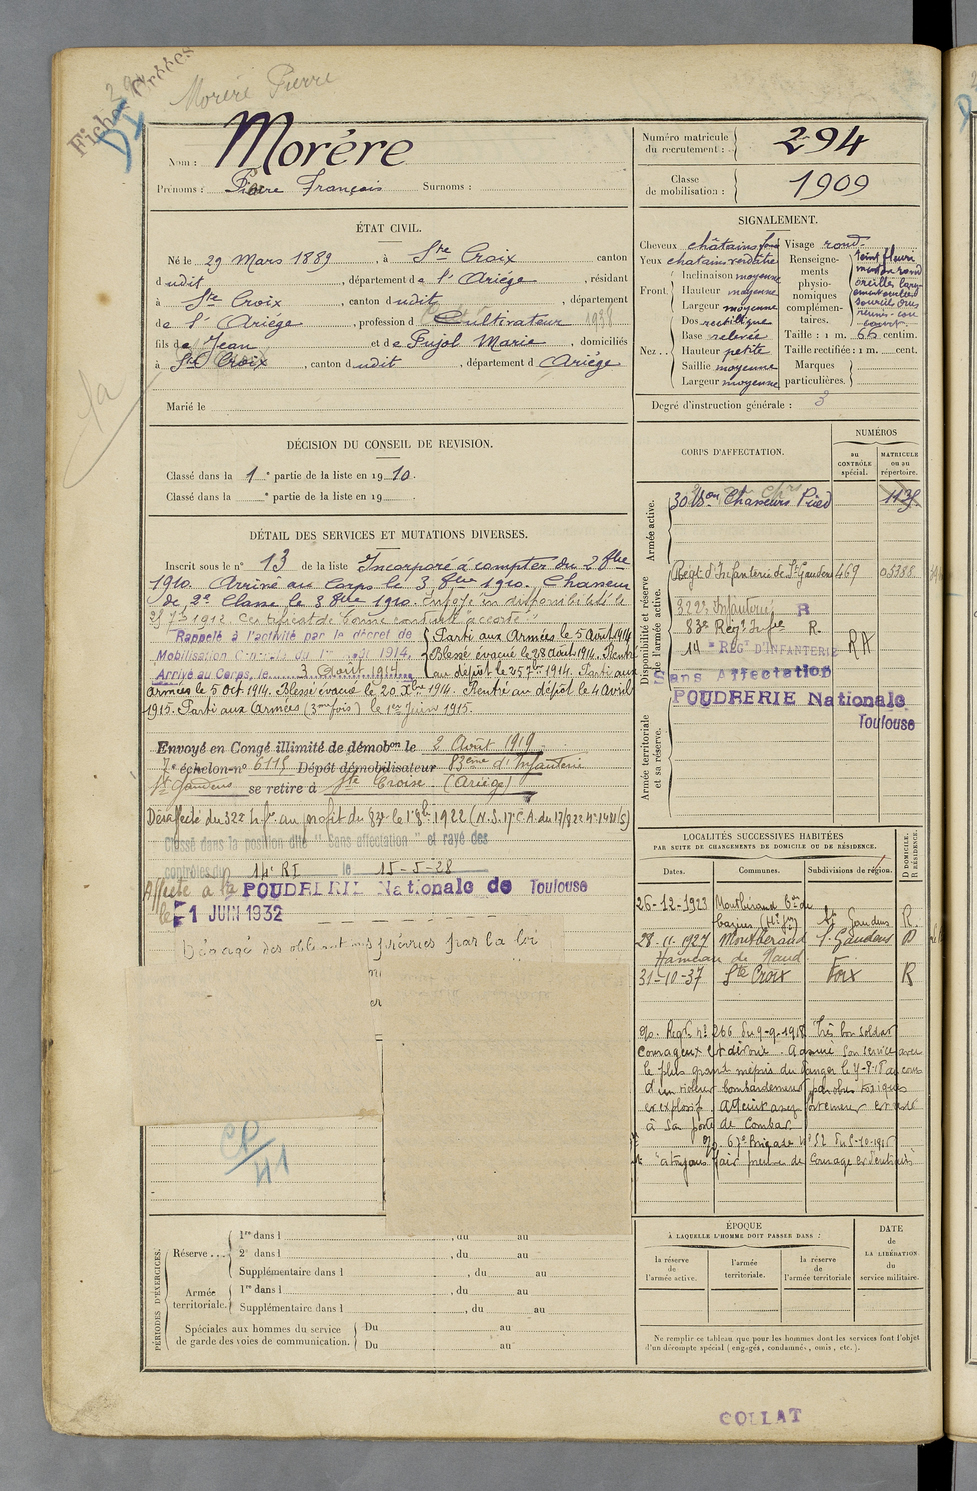 Moréré Pierre
Nom : Morère
Prénoms : Pierre François Surnoms :
Numéro matricule du recrutement : 294
Classe de mobilisation : 1909
ÉTAT CIVIL.
Né le 29 Mars 1889, à Ste Croix canton
dudit, département de l'Ariége, résidant
à Ste Croix, canton dudit, département
de l'Ariége, profession de Cultivateur
fils de Jean et de Pujol Marie, domiciliés
à Ste Croix, canton dudit, département d Ariége
Marié le
SIGNALEMENT.
Cheveux châtains
Yeux
Front
Inclinaison moyenne
Hauteur moyenne
Largeur moyenne
Nez
Dos rectiligne
Base relevée
Hauteur petite
Saillie moyenne
Largeur moyenne
Visage rond
Renseignements physionomiques complémentaires.
teint fleuri
Taille : 1 m. 66 centim.
Taille rectifiée : 1 m. cent.
Marques particulières.
Degré d'instruction générale : 3
DÉCISION DU CONSEIL DE REVISION.
Classé dans la 1e partie de la liste en 1910.
Classé dans la e partie de la liste en 19
DÉTAIL DES SERVICES ET MUTATIONS DIVERSES.
Inscrit sous le n° 13 de la liste Incorporé à compter du 2 8bre
1910. Arrivé au Corps le 3 8bre 1910. Chasseur
de 2e Classe le 3 8bre 1910. Envoyé en disponibilité le
25 7bre 1912. Certificat de bonne conduite accordé
Rappelé à l'activité par le décret de
Mobilisation Générale du 1er août 1914.
Arrivé au Corps, le 3 Août 1914
Parti aux Armées le 5 Août 1914
Blessé évacué le 28 août 1914. Rentré
au dépôt le 25 7bre 1914. Parti aux
armées le 5 Oct 1914. Blessé évacué le 20 Xbre 1914. Rentré au dépôt le 4 Avril
1915. Parti aux Armées (3me fois) le 1er Juin 1915.
Envoyé en Congé illimité de démobon le 2 Août 1919
7e échelon-no 6115 Dépôt démobilisateur 83ème d'Infanterie
St Gaudens se retire à Ste Croix (Ariége)
Désaffecté du 322 au profit du 83 le 1er 8bre 1922
Classé dans la position dite "Sans affectation" et rayé des
contrôles du 14e RI le 15-5-28
Affecté à la POUDRERIE Nationale de Toulouse
le 1 JUIN 1932
Dégagé des obligations prévues par la loi
CP/41
CORPS D'AFFECTATION.
NUMÉROS
au CONTRÔLE spécial.
MATRICULE ou au répertoire.
Armée active.
30 Bon Chasseurs Pied
Disponibilité et réserve de l'armée active.
Régt d'Infanterie de St Gaudens 469 05388
322e Infanterie R
83e Régt Infie R.
14e REGt D'INFANTERIE RA
Sans Affectation
POUDRERIE Nationale
Toulouse
Armée territoriale et sa réserve.
LOCALITÉS SUCCESSIVES HABITÉES
PAR SUITE DE CHANGEMENTS DE DOMICILE OU DE RÉSIDENCE.
Dates. Communes. Subdivisions de région. D DOMICILE. R RÉSIDENCE.
26-12-1923 Montbéraud St Gaudens R.
28-11-1927 Montbéraud St Gaudens D
Hameau de Naud
31-10-37 Ste Croix Foix R
Régt n° 266 du 9-9-1918 Très bon soldat
Courageux et dévoué. A assuré son service avec
le plus grand mépris du danger le 4-8-18 au cours
d'un violent bombardement par obus toxiques
et explosifs. Atteint assez fortement est resté
à son poste de combat.
67e Brigade n° 52
a toujours fait preuve de courage et
PÉRIODES D'EXERCICES.
Réserve
1re dans l , du au
2e dans l , du au
Supplémentaire dans l , du au
Armée territoriale.
1re dans l , du au
Supplémentaire dans l , du au
Spéciales aux hommes du service de garde des voies de communication.
Du au
Du au
ÉPOQUE
À LAQUELLE L'HOMME DOIT PASSER DANS :
la réserve de l'armée active.
l'armée territoriale.
la réserve de l'armée territoriale
DATE DE LA LIBÉRATION du service militaire.
Ne remplir ce tableau que pour les hommes dont les services font l'objet
d'un décompte spécial (engagés, condamnés, omis, etc.).
COLLAT